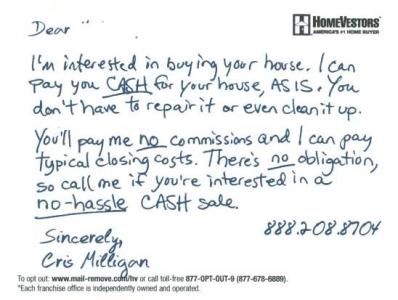 Dear
HOMEVESTORS®
AMERICA'S #1 HOME BUYER
I'm interested in buying your house. I can
pay you CASH for your house, AS IS. You
don't have to repair it or even clean it up.
You'll pay me no commissions and I can pay
typical closing costs. There's no obligation,
so call me if you're interested in a
no-hassle CASH sale.
888.208.8704
Sincerely,
Cris Milligan
To opt out: www.mail-remove.com/hv or call toll-free 877-OPT-OUT-9 (877-678-6889).
*Each franchise office is independently owned and operated.